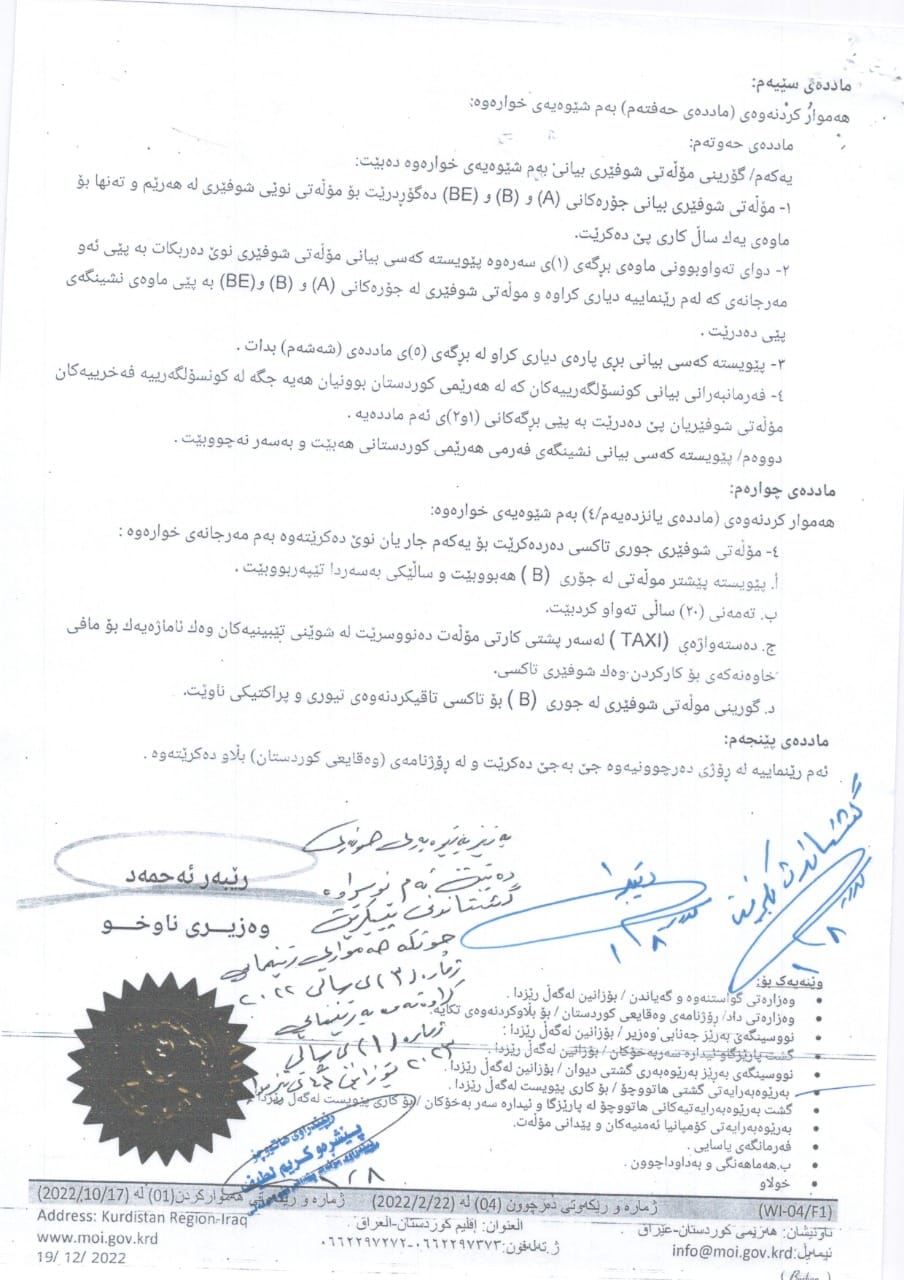 ماددەی سێیەم:
هەموار کردنەوەی (ماددەی حەفتەم) بەم شێوەیەی خوارەوە:
ماددەی حەوتەم:
یەکەم/ گۆرینی مۆڵەتی شوفێری بیانی بەم شێوەیەی خوارەوە دەبێت:
١- مۆڵەتی شوفێری بیانی جۆرەکانی (A) و (B) و (BE) دەگۆڕدرێت بۆ مۆڵەتی نوێی شوفێری لە هەرێم و تەنها بۆ
ماوەی یەك ساڵ کاری پێ دەکرێت.
٢- دوای تەواوبوونی ماوەی برگەی (١)ی سەرەوە پێویستە کەسی بیانی مۆڵەتی شوفێری نوێ دەربکات بە پێی ئەو
مەرجانەی کە لەم رێنماییە دیاری کراوە و موڵەتی شوفێری لە جۆرەکانی (A) و (B) و(BE) بە پێی ماوەی نشینگەی
پێی دەدرێت .
٣- پێویستە کەسی بیانی بڕی پارەی دیاری کراو لە برگەی (٥)ی ماددەی (شەشەم) بدات .
٤- فەرمانبەرانی بیانی کونسۆلگەرییەکان کە لە هەرێمی کوردستان بوونیان هەیە جگە لە کونسۆلگەرییە فەخرییەکان
مۆڵەتی شوفێریان پێ دەدرێت بە پێی برگەکانی (١و٢)ی ئەم ماددەیە .
دووەم/ پێویستە کەسی بیانی نشینگەی فەرمی هەرێمی کوردستانی هەبێت و بەسەر نەچووبێت .
ماددەی چوارەم:
هەموار کردنەوەی (ماددەی یانزدەیەم/٤) بەم شێوەیەی خوارەوە:
٤- مۆڵەتی شوفێری جوری تاکسی دەردەکرێت بۆ یەکەم جار یان نوێ دەکرێتەوە بەم مەرجانەی خوارەوە :
أ. پێویستە پێشتر موڵەتی لە جۆری (B) هەبووبێت و ساڵێکی بەسەردا تێپەربووبێت .
ب. تەمەنی (٢٠) ساڵی تەواو کردبێت.
ج. دەستەواژەی (TAXI) لەسەر پشتی کارتی مۆڵەت دەنووسرێت لە شوێنی تێبینیەکان وەك ئاماژەیەك بۆ مافی
خاوەنەکەی بۆ کارکردن وەك شوفێری تاکسی.
د. گورینی موڵەتی شوفێری لە جوری (B) بۆ تاکسی تاقیکردنەوەی تیوری و پراکتیکی ناوێت.
ماددەی پێنجەم:
ئەم رێنماییە لە ڕۆژی دەرچوونیەوە جێ بەجێ دەکرێت و لە ڕۆژنامەی (وەقایعی کوردستان) بڵاو دەکرێتەوە .
رێبەر ئەحمەد
وەزیـری ناوخـو
وێنەیەک بۆ:
وەزارەتی گواستنەوە و گەیاندن / بۆزانین لەگەڵ رێزدا .
وەزارەتی داد/ ڕۆژنامەی وەقایعی کوردستان / بۆ بڵاوکردنەوەی تکایە.
نووسینگەی بەرێز جەنابی وەزیر / بۆزانین لەگەڵ رێزدا :
گشت پارێزگاو ئیدارە سەربەخۆکان / بۆزانین لەگەڵ رێزدا .
نووسینگەی بەرێز بەرێوەبەری گشتی دیوان / بۆزانین لەگەڵ رێزدا .
بەرێوەبەرایەتی گشتی هاتووچۆ / بۆ کاری پێویست لەگەڵ رێزدا .
گشت بەرێوەبەرایەتیەکانی هاتووچۆ لە پارێزگا و ئیدارە سەر بەخۆکان / بۆ کاری پێویست لەگەڵ رێزدا
بەرێوەبەرایەتی کۆمپانیا ئەمنیەکان و پێدانی مۆڵەت.
فەرمانگەی یاسایی .
ب.هەماهەنگی و بەداوداچوون .
خولاو
(WI-04/F1) ژمارە و رێکەوتی دەرچوون (04) لە (2022/2/22) ژمارە و رێکەوتی هەموارکردن(01) لە (2022/10/17)
ناونیشان: هەرێمی کوردستان-عێراق العنوان: إقلیم کوردستان-العراق Address: Kurdistan Region-Iraq
ئیمەیڵ:info@moi.gov.krd ژ.تەلەفون:٠٦٦٢٢٩٧٣٧٣-٠٦٦٢٢٩٧٢٧٢ www.moi.gov.krd
19/ 12/ 2022